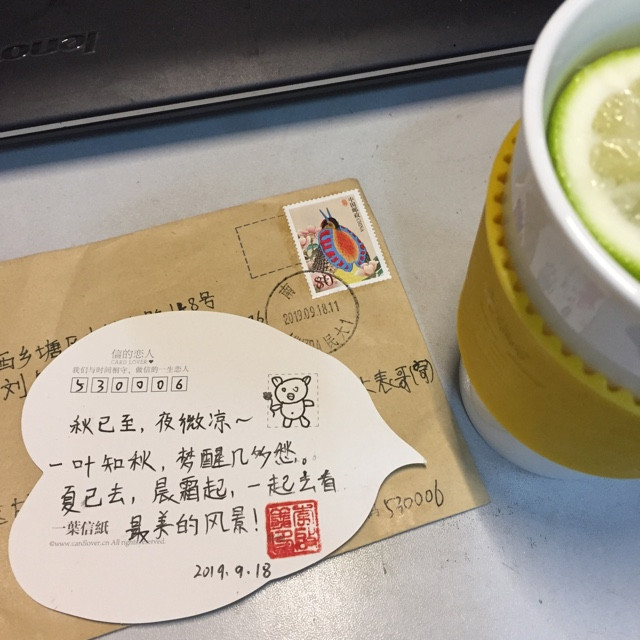 lenovo
中国邮政
80
2019.09.18.11
号
西乡塘区
刘
大表哥阁
530006
信的恋人
CARD LOVER
我们与时间相守，做信的一生恋人
530006
秋已至，夜微凉～
一叶知秋，梦醒几多愁。
夏已去，晨霜起，一起去看
一葉信紙 最美的风景！
©www.cardlover.cn All rights reserved.
2019.9.18